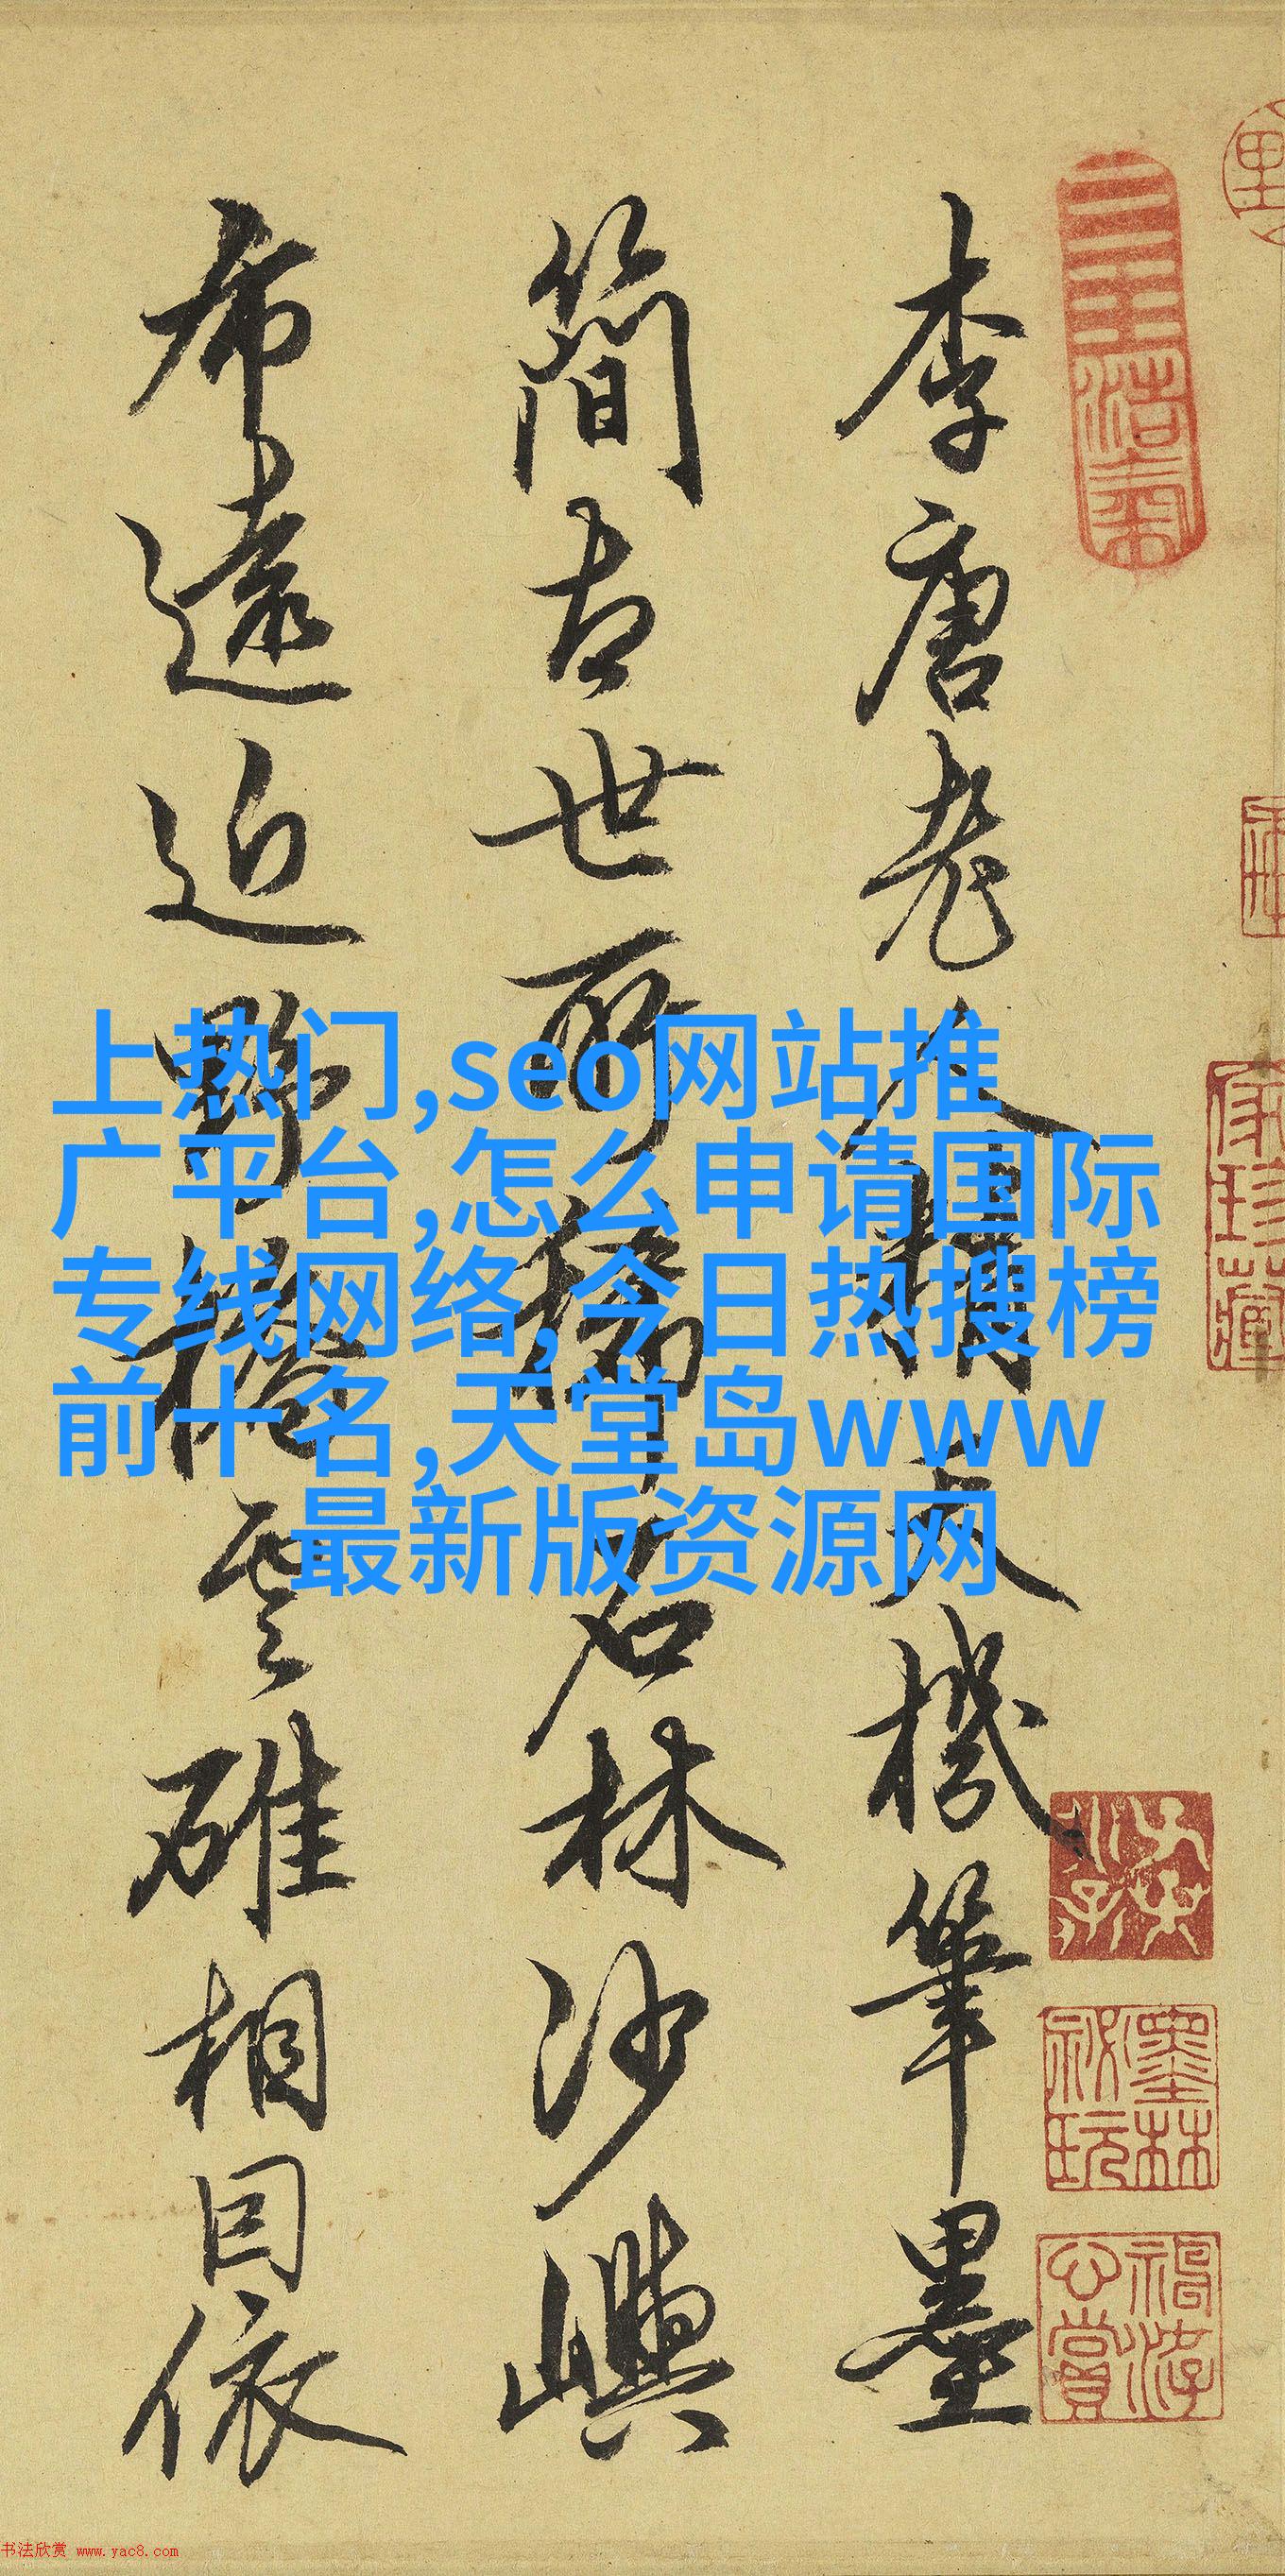 李唐老人精天機筆墨
簡古世所稱石林沙嶼
布遠近野橋雲碓相因依
上热门,seo网站推
广平台,怎么申请国际
专线网络,今日热搜榜
前十名,天堂岛www
最新版资源网
墨林
秘玩
书法欣赏 www.yac8.com